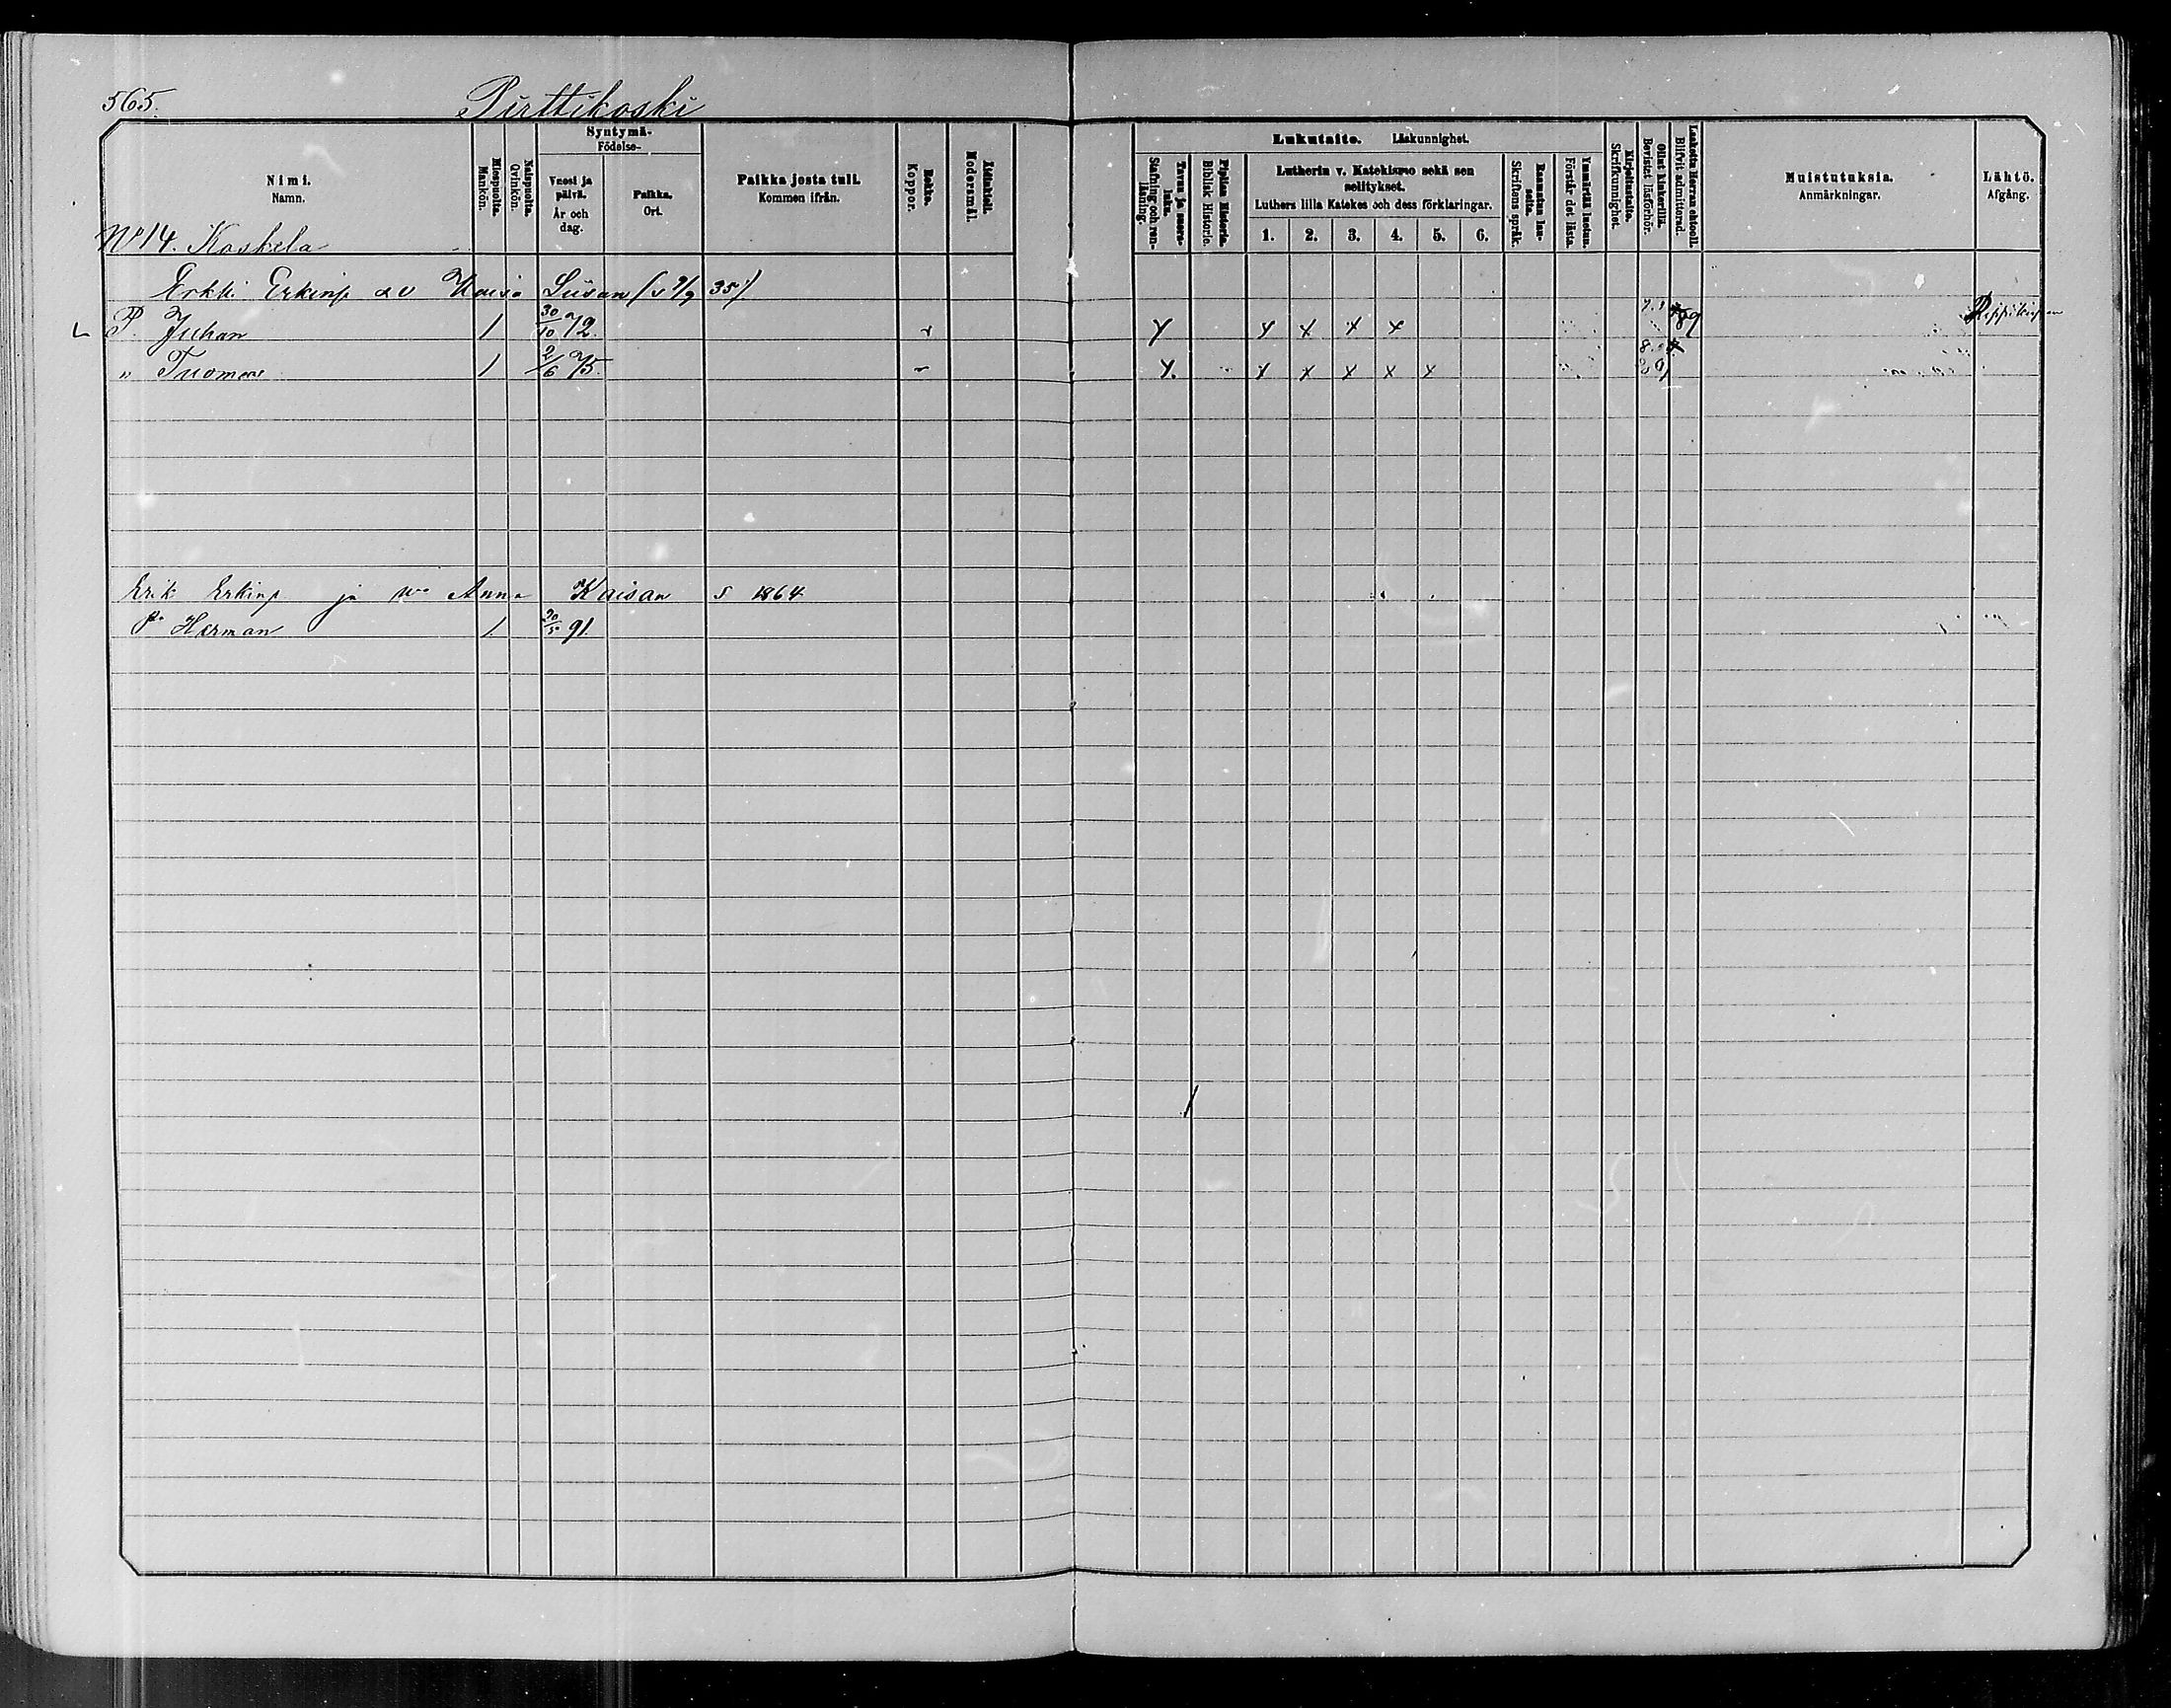 565. Pirttikoski
Nimi. Namn.
Miespuolia. Mankön.
Naispuolia. Qvinkön.
Syntymä- Födelse-
Vuosi ja päivä. År och dag.
Paikka. Ort.
Paikka josta tuli. Kommen ifrån.
Rokko. Koppor.
Äidinkieli. Modersmål.
Lukutaito. Läskunnighet.
Tavuu ja suora- luku. Stafning och ren- läsning.
Piplian Historia. Biblisk Historie.
Lutherin v. Katekismo sekä sen selitykset.
Luthers lilla Katekes och dess förklaringar.
1. 2. 3. 4. 5. 6.
Raamatun lau- seita. Skriftens språk.
Ymmärtää luetun. Förstår det lästa.
Kirjoitustaito. Skrifkunnighet.
Ollut kinkerillä. Bevistat läsförhör.
Laskettu Herran ehtooll. Blifvit admitterad.
Muistutuksia. Anmärkningar.
Lähtö. Afgång.
No 14. Koskela
Erkki Erkinp Kaisa Liisan (s 9/9 35)
P. Juhan 1 30/10 72. x x x x 89
" Tuomas 1 2/6 75. x x x x x
Erik Erkinp ja Anna Kaisan s 1864
p. Herman 1. 20/5 91.